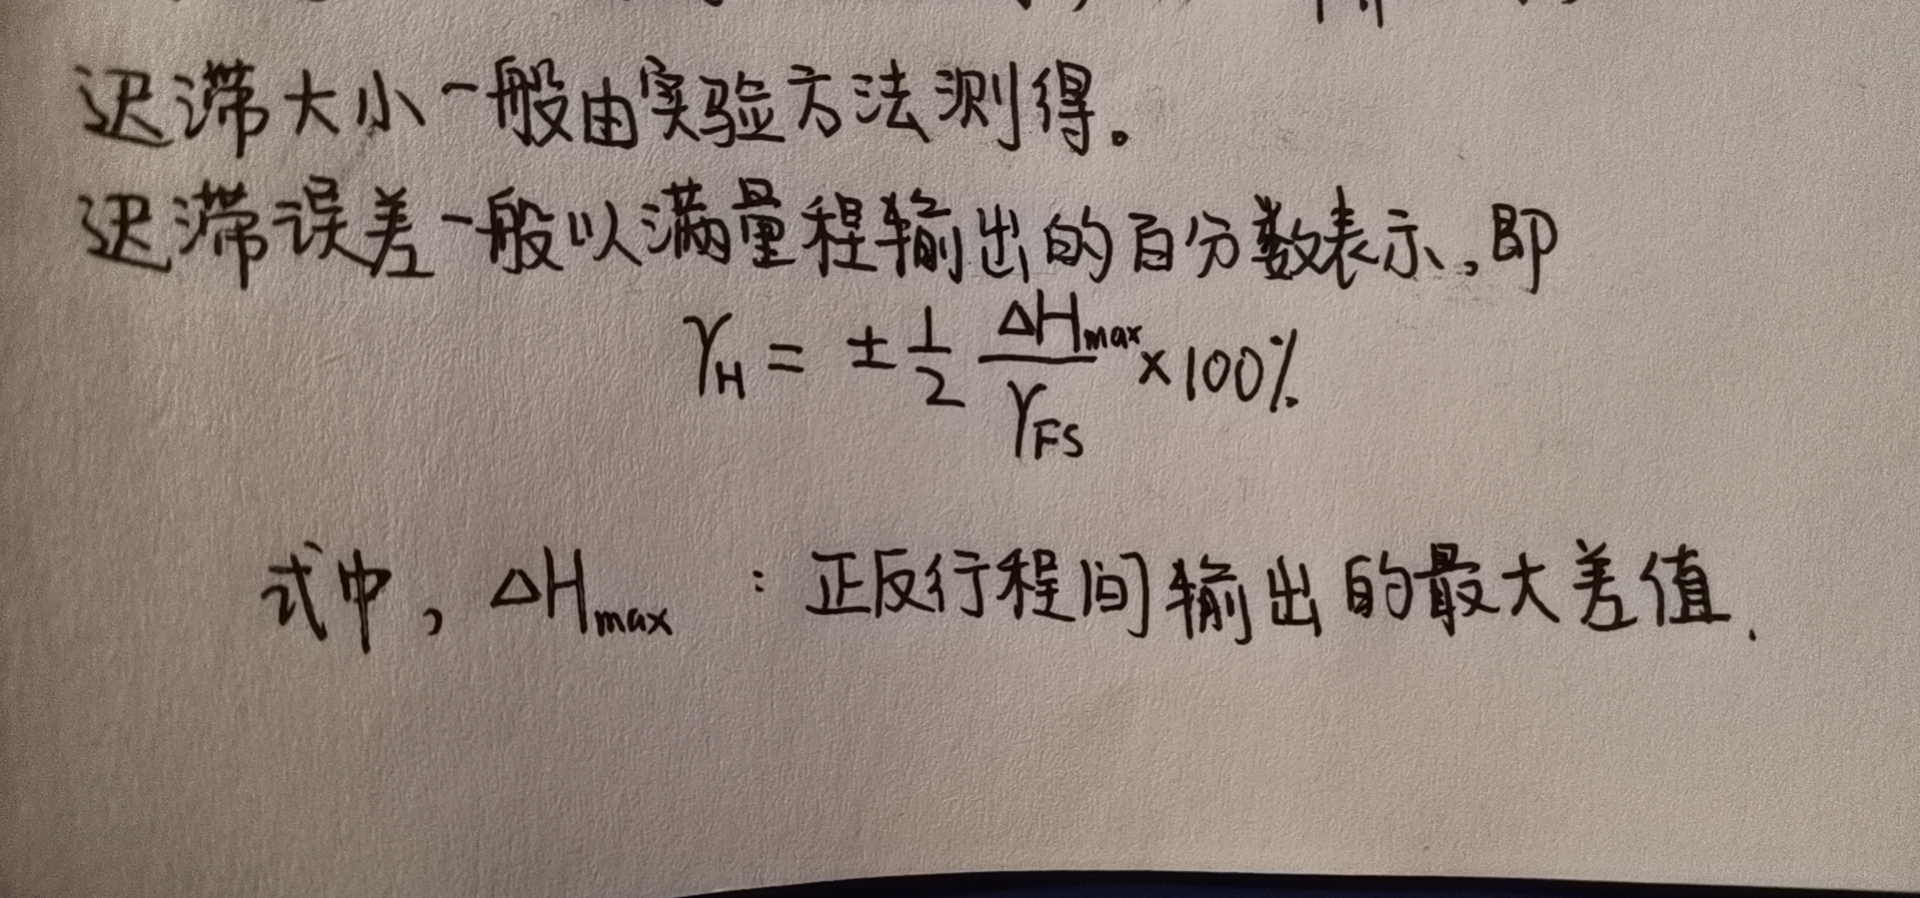 迟滞大小一般由实验方法测得。
迟滞误差一般以满量程输出的百分数表示,即
γ_H = ± 1/2 ΔH_max/Y_FS × 100%
式中, ΔH_max : 正反行程间输出的最大差值.